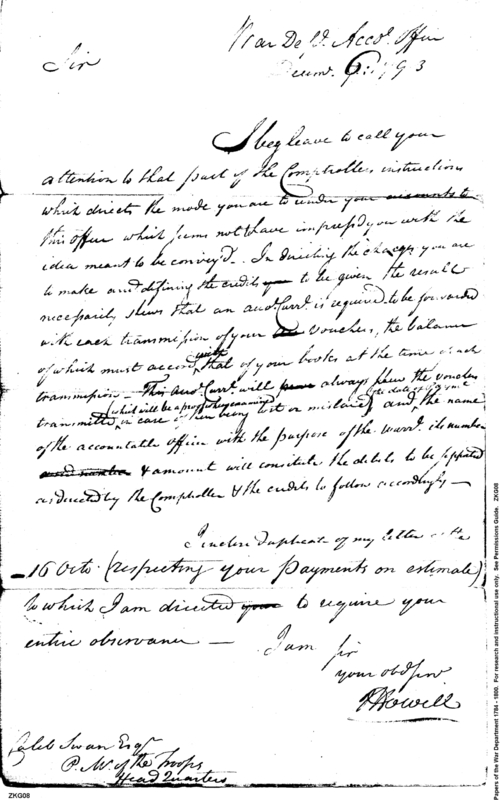 War Dept. Accots. Office
Sir
Decemr. 6. 1793
I beg leave to call your
attention to that part of the Comptrollers instructions
which directs the mode you are to render your accounts to
this office which seems not to have impress'd you with the
idea meant to be convey'd. In directing the charges you are
to make and defining the credits to be given the result
necessarily shews that an acct. Currt. is required to be forwarded
with each transmission of your vouchers, the balance
of which must accord with that of your books at the time of each
transmission - This acct. Currt. will always shew the vouchers
transmitted, in case of their being lost or mislaid, and, the name
of the accountable officer with the purpose of the warrt. its number
& amount will consitute the debits to be seperated
as directed by the Comptroller & the credits to follow accordingly -
I inclose Duplicate of my letter
16 Octo. (respecting your payments on estimate)
to which I am directed to require your
entire observance -
I am Sir
your obd Serv
J Howell
Caleb Swan Esqr.
P. M. of the Troops
Head Quarters
ZKG08
Papers of the War Department 1784 - 1800. For research and instructional use only. See Permissions Guide. ZKG08